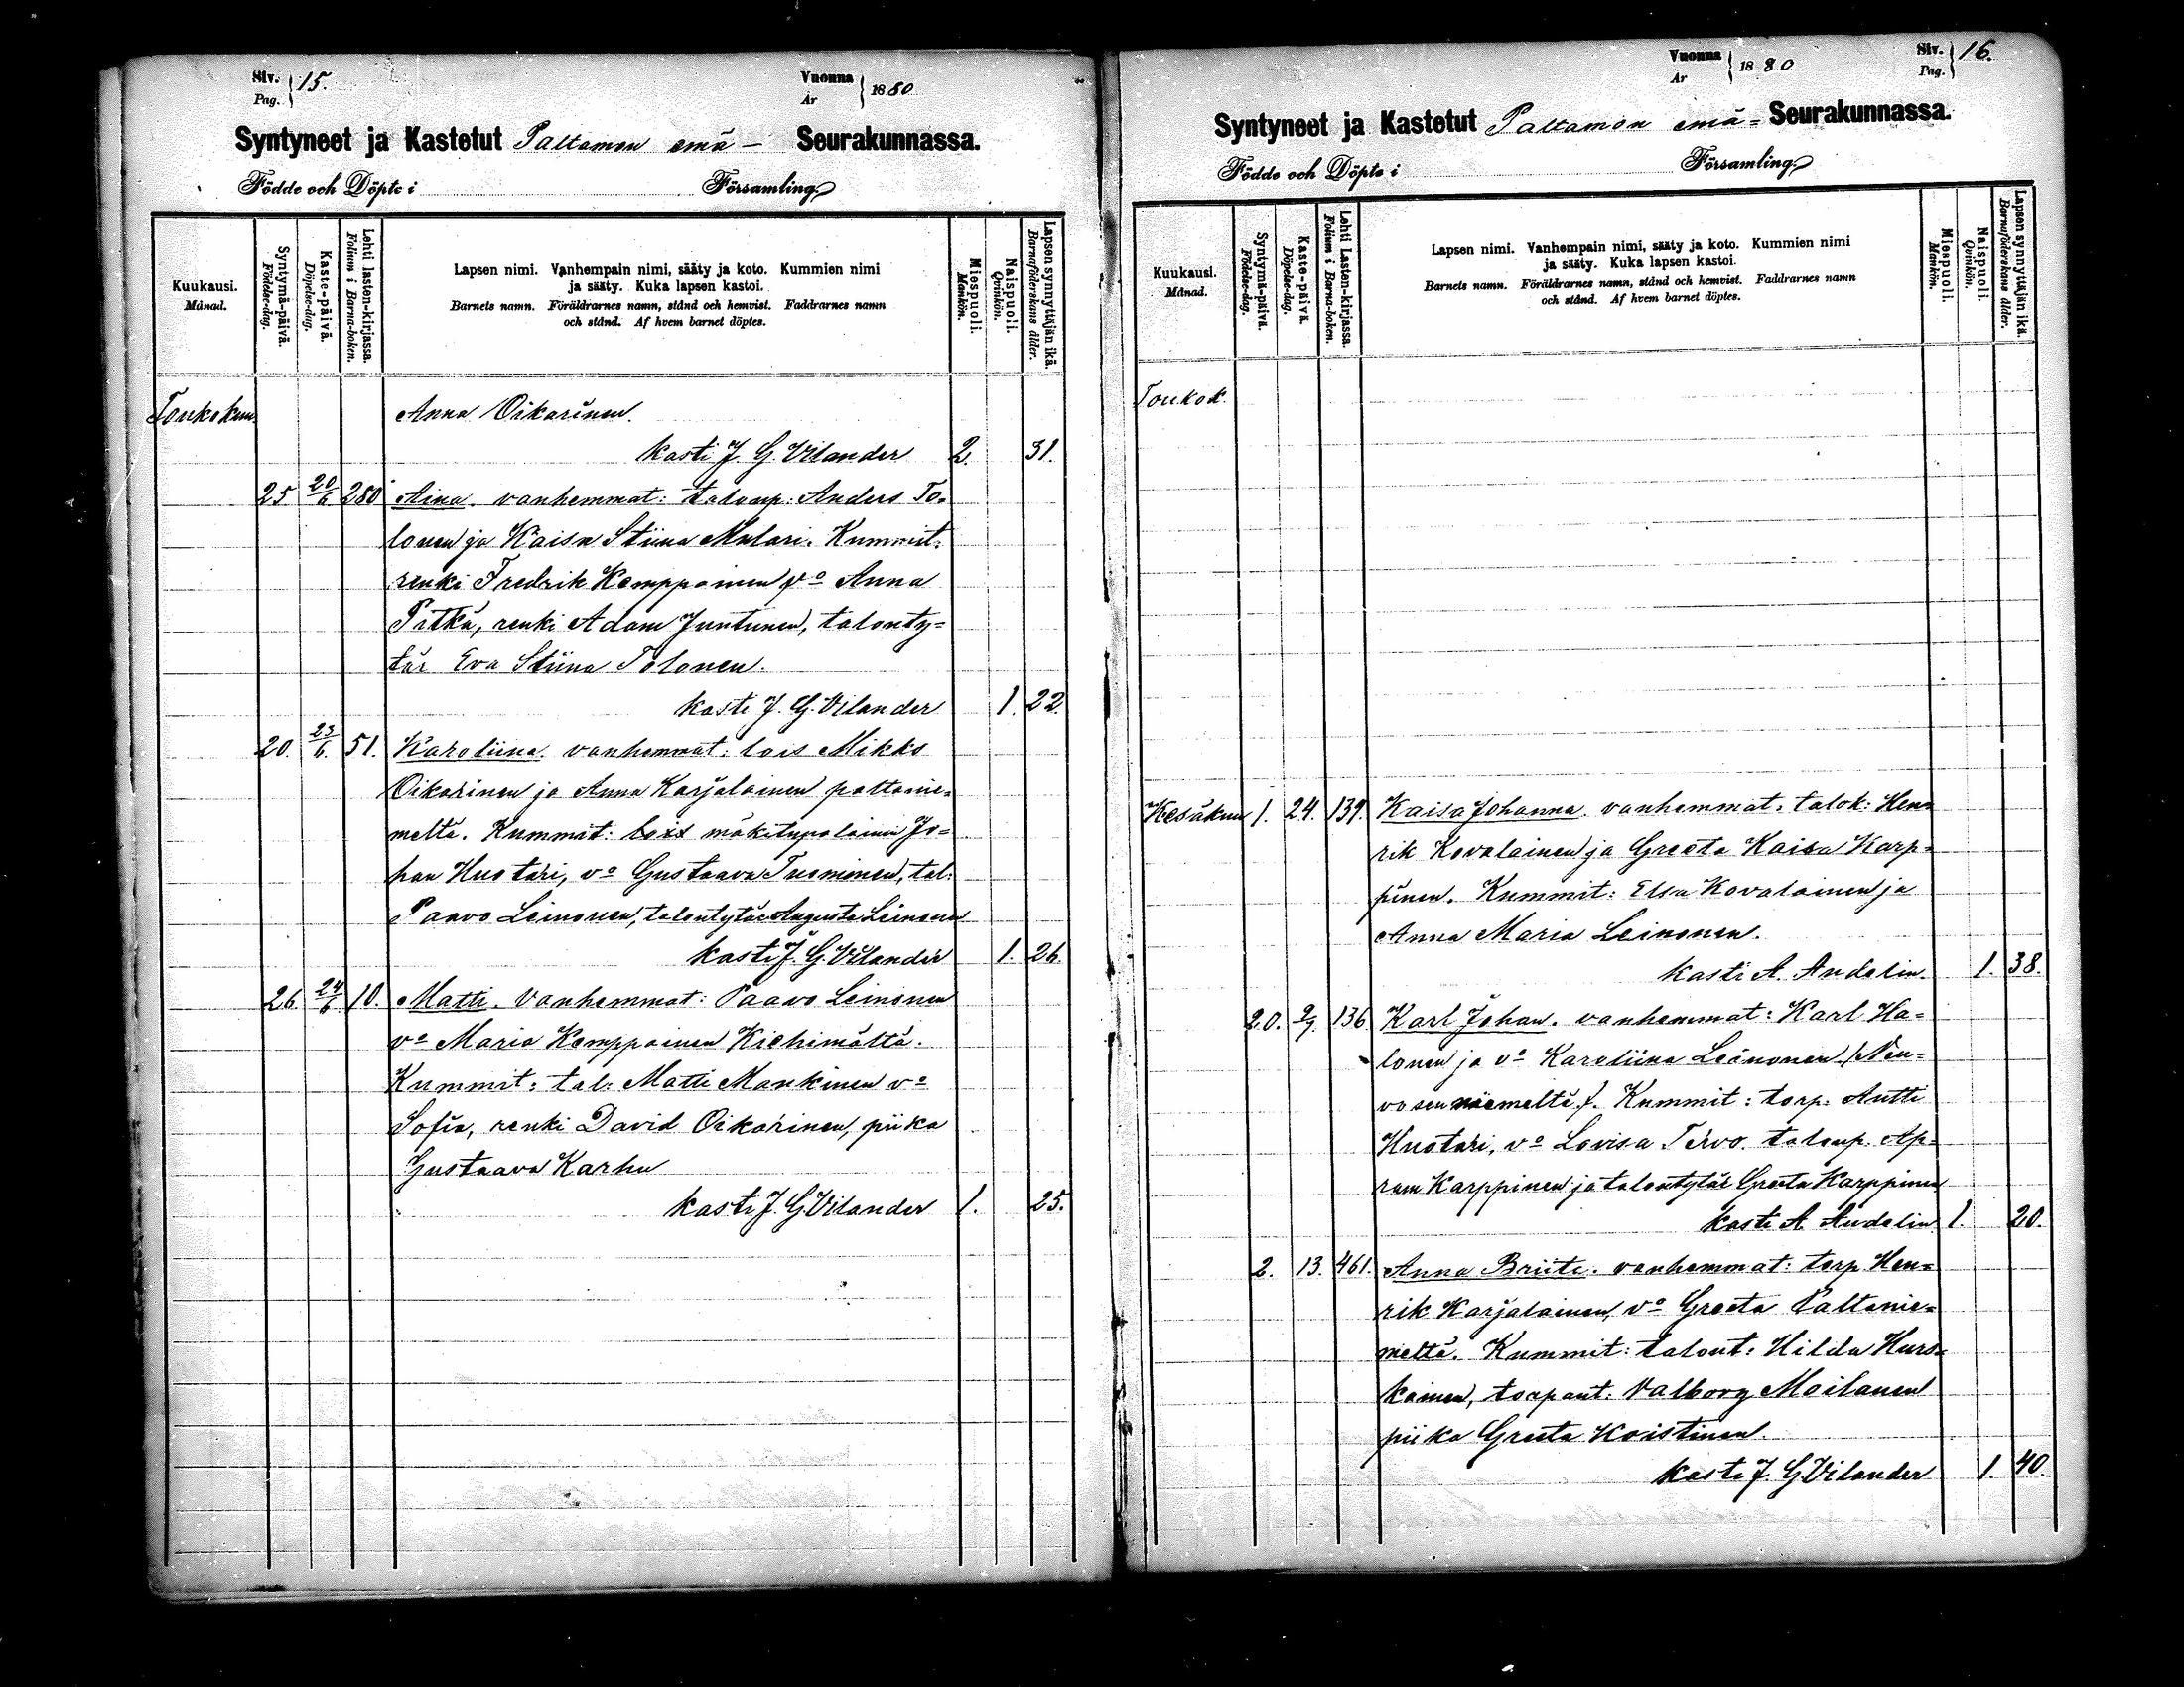 Siv. Pag. } 15.
Vuonna År } 1880
Syntyneet ja Kastetut Paltamon emä- Seurakunnassa.
Födde och Döpte i Församling
Kuukausi. Månad.
Syntymä-päivä. Födelse-dag.
Kaste-päivä. Döpelse-dag.
Lehti lasten-kirjassa. Folium i Barna-boken.
Lapsen nimi. Vanhempain nimi, sääty ja koto. Kummien nimi
ja sääty. Kuka lapsen kastoi.
Barnets namn. Föräldrarnes namn, stånd och hemvist. Faddrarnes namn
och stånd. Af hvem barnet döptes.
Miespuoli. Mankön.
Naispuoli. Qvinkön.
Lapsen synnyttäjän ikä. Barnaföderskans ålder.
Toukokuu. Anna Oikarinen.
kasti J. G. Vilander 2. 31.
25 20/6. 280 Aina. vanhemmat: taloup: Anders To-
lonen ja Kaisa Stiina Mulari. Kummit:
renki Fredrik Kemppainen vo Anna
Pitkä, renki Adam Juntunen, talonty-
tär Eva Stiina Tolonen.
kasti J. G. Vilander 1. 22.
20. 23/6. 51. Karoliina. vanhemmat: lois Mikko
Oikarinen ja Anna Karjalainen paltanie-
meltä. Kummit: loix mäkitupalainen Jo-
han Huotari, vo Gustaava Tuominen, tal:
Paavo Leinonen, talontytär Augusta Leinonen
kasti J. G. Vilander 1. 26.
26 24/6 10. Matti. Vanhemmat: Paavo Leinonen
vo Maria Kemppainen Kiehimältä.
Kummit: tal: Matti Mankinen vo
Sofia, renki David Oikarinen, piika
Gustaava Karhu
kasti J. G Vilander 1. 25.
Vuonna År } 1880
Siv. Pag. } 16.
Syntyneet ja Kastetut Paltamon emä- Seurakunnassa.
Födde och Döpte i Församling
Kuukausi. Månad.
Syntymä-päivä. Födelse-dag.
Kaste-päivä. Döpelse-dag.
Lehti Lasten-kirjassa. Folium i Barna-boken.
Lapsen nimi. Vanhempain nimi, sääty ja koto. Kummien nimi
ja sääty. Kuka lapsen kastoi.
Barnets namn. Föräldrarnes namn, stånd och hemvist. Faddrarnes namn
och stånd. Af hvem barnet döptes.
Miespuoli. Mankön.
Naispuoli. Qvinkön.
Lapsen synnyttäjän ikä. Barnaföderskans ålder.
Toukok.
Kesäkuu 1. 24. 139. Kaisa Johanna. vanhemmat: talok: Hen-
rik Kovalainen ja Greeta Kaisa Karp-
pinen. Kummit: Elsa Kovalainen ja
Anna Maria Leinonen.
kasti A. Andelin. 1. 38.
20. 2/7. 136 Karl Johan. vanhemmat: Karl Ha-
lonen ja vo Karoliina Leinonen (Neu-
vosenniemeltä). Kummit: torp: Antti
Huotari, vo Lovisa Tervo. taloup. Ap-
ram Karppinen ja talontytär Greeta Karppinen
kasti A. Andelin 1. 20.
2. 13. 461. Anna Briita. vanhemmat: torp Hen-
rik Karjalainen, vo Greeta Paltanie-
meltä. Kummit: talont: Hilda Hurs-
kainen, torpant: Valborg Moilanen
piika Greeta Koistinen.
kasti J. G Vilander 1. 40.